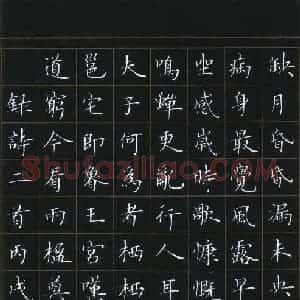 缺月昏昏漏未央
病身最覺風露早
坐感歲時歌慷慨
鳴蟬更亂行人耳
夫子何為者栖栖
邑宅即魯王宮嘆
道窮今看兩楹奠
錄詩二首丙戌
Shufaziliao.com